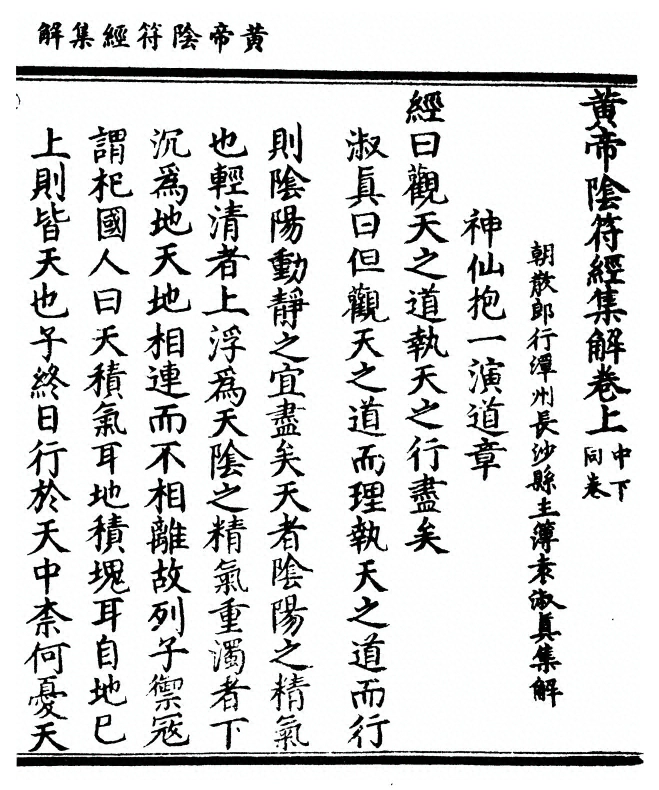 黃帝陰符經集解
黃帝陰符經集解卷上中下同卷
朝散郎行潭州長沙縣主簿袁淑真集解
神仙抱一演道章
經曰觀天之道執天之行盡矣
淑真曰但觀天之道而理執天之道而行
則陰陽動靜之宜盡矣天者陰陽之精氣
也輕清者上浮為天陰之精氣重濁者下
沉為地天地相連而不相離故列子禦寇
謂杞國人曰天積氣耳地積塊耳自地已
上則皆天也子終日行於天中柰何憂天